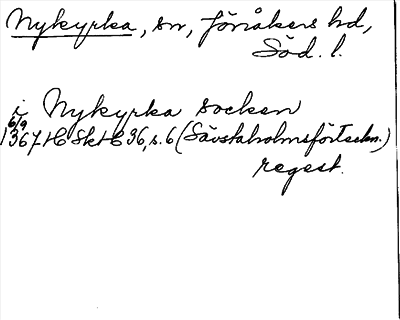 Nykyrka, sn, Jönåkers hd,
Söd. l.
i Nykyrka socken
6/9
1367 HC SkHC 36, s. 6 (Sävstaholmsförteckn.)
regest.